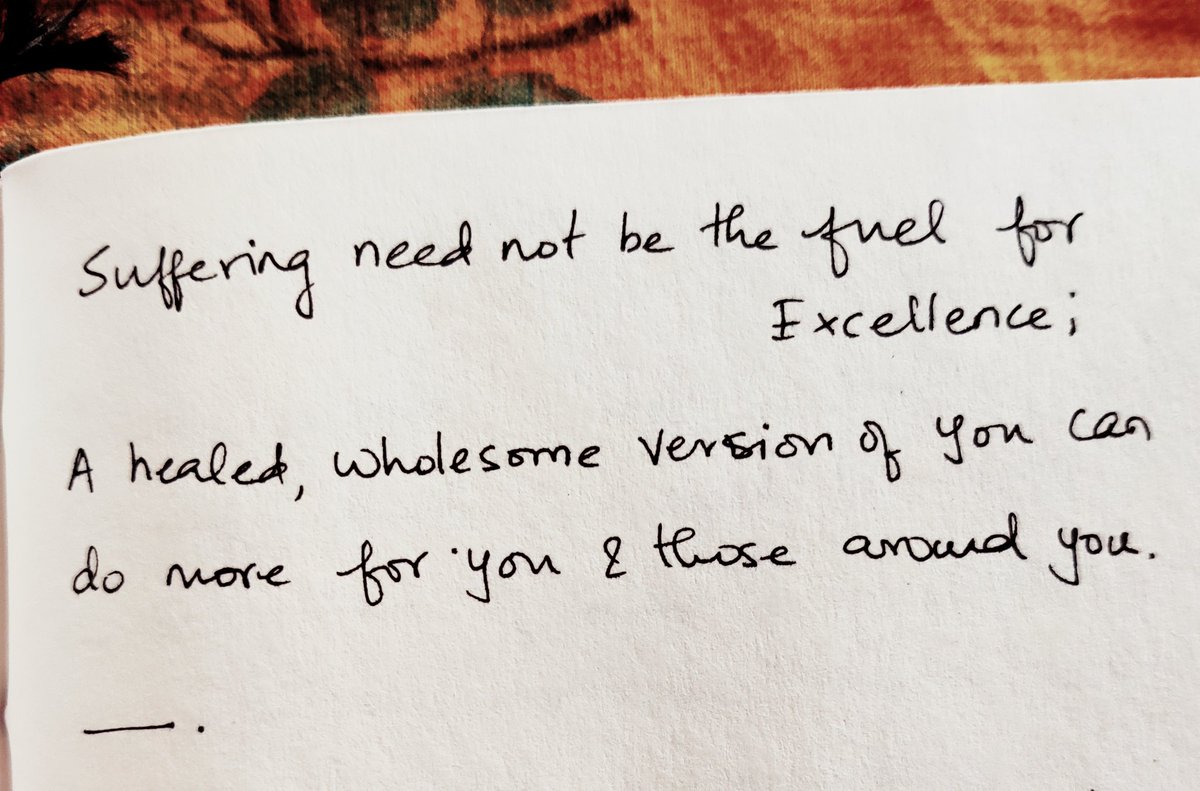 Suffering need not be the fuel for
Excellence;
A healed, wholesome version of you can
do more for you & those around you.
—.